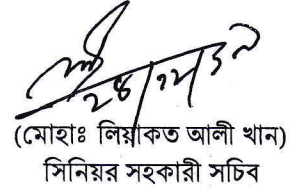 (মোহাঃ লিয়াকত আলী খান)
সিনিয়র সহকারী সচিব